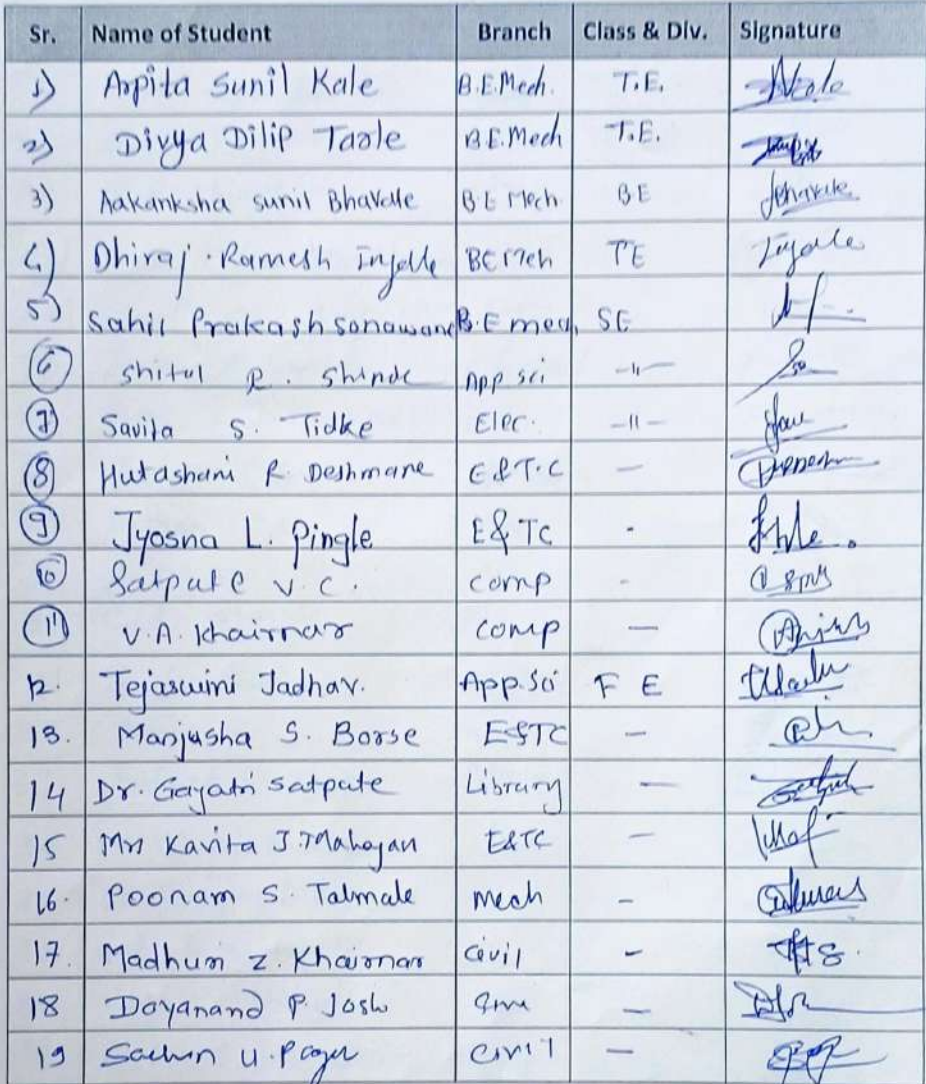 Sr. Name of Student Branch Class & Div. Signature
1) Arpita Sunil Kale B.E.Mech. T.E. Kale
2) Divya Dilip Tazle B.E.Mech T.E.
3) Aakanksha sunil Bhavate B.E Mech BE Bhavate
4) Dhiraj . Ramesh Ingale BE Mech TE Ingale
5) Sahil Prakash sonawane B.E mech SE
6 Shital R. Shinde App sci -11-
7 Savita S. Tidke Elec. -11-
8 Hutashani R Deshmane E&T.C —
9 Jyosna L. Pingle E&TC -
10 Satpute V.C. comp -
11 V.A. Khairnar comp —
12. Tejaswini Jadhav. App.Sci F E
13. Manjusha S. Borse E&TC —
14 Dr. Gayatri Satpute Library —
15 Mrs Kavita J. Mahajan E&TC —
16. Poonam S. Talmale Mech -
17. Madhuri Z. Khairnar Civil -
18 Dayanand P Joshi —
19 Sachin U. Civil —